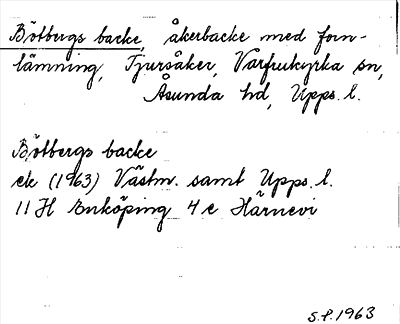 Bötbergs backe, åkerbacke med forn-
lämning, Tjursåker, Vårfrukyrka sn,
Åsunda hd, Upps. l.
Bötbergs backe
ek (1963) Västm. samt Upps. l.
11 H Enköping 4 c Härnevi
S.P. 1963